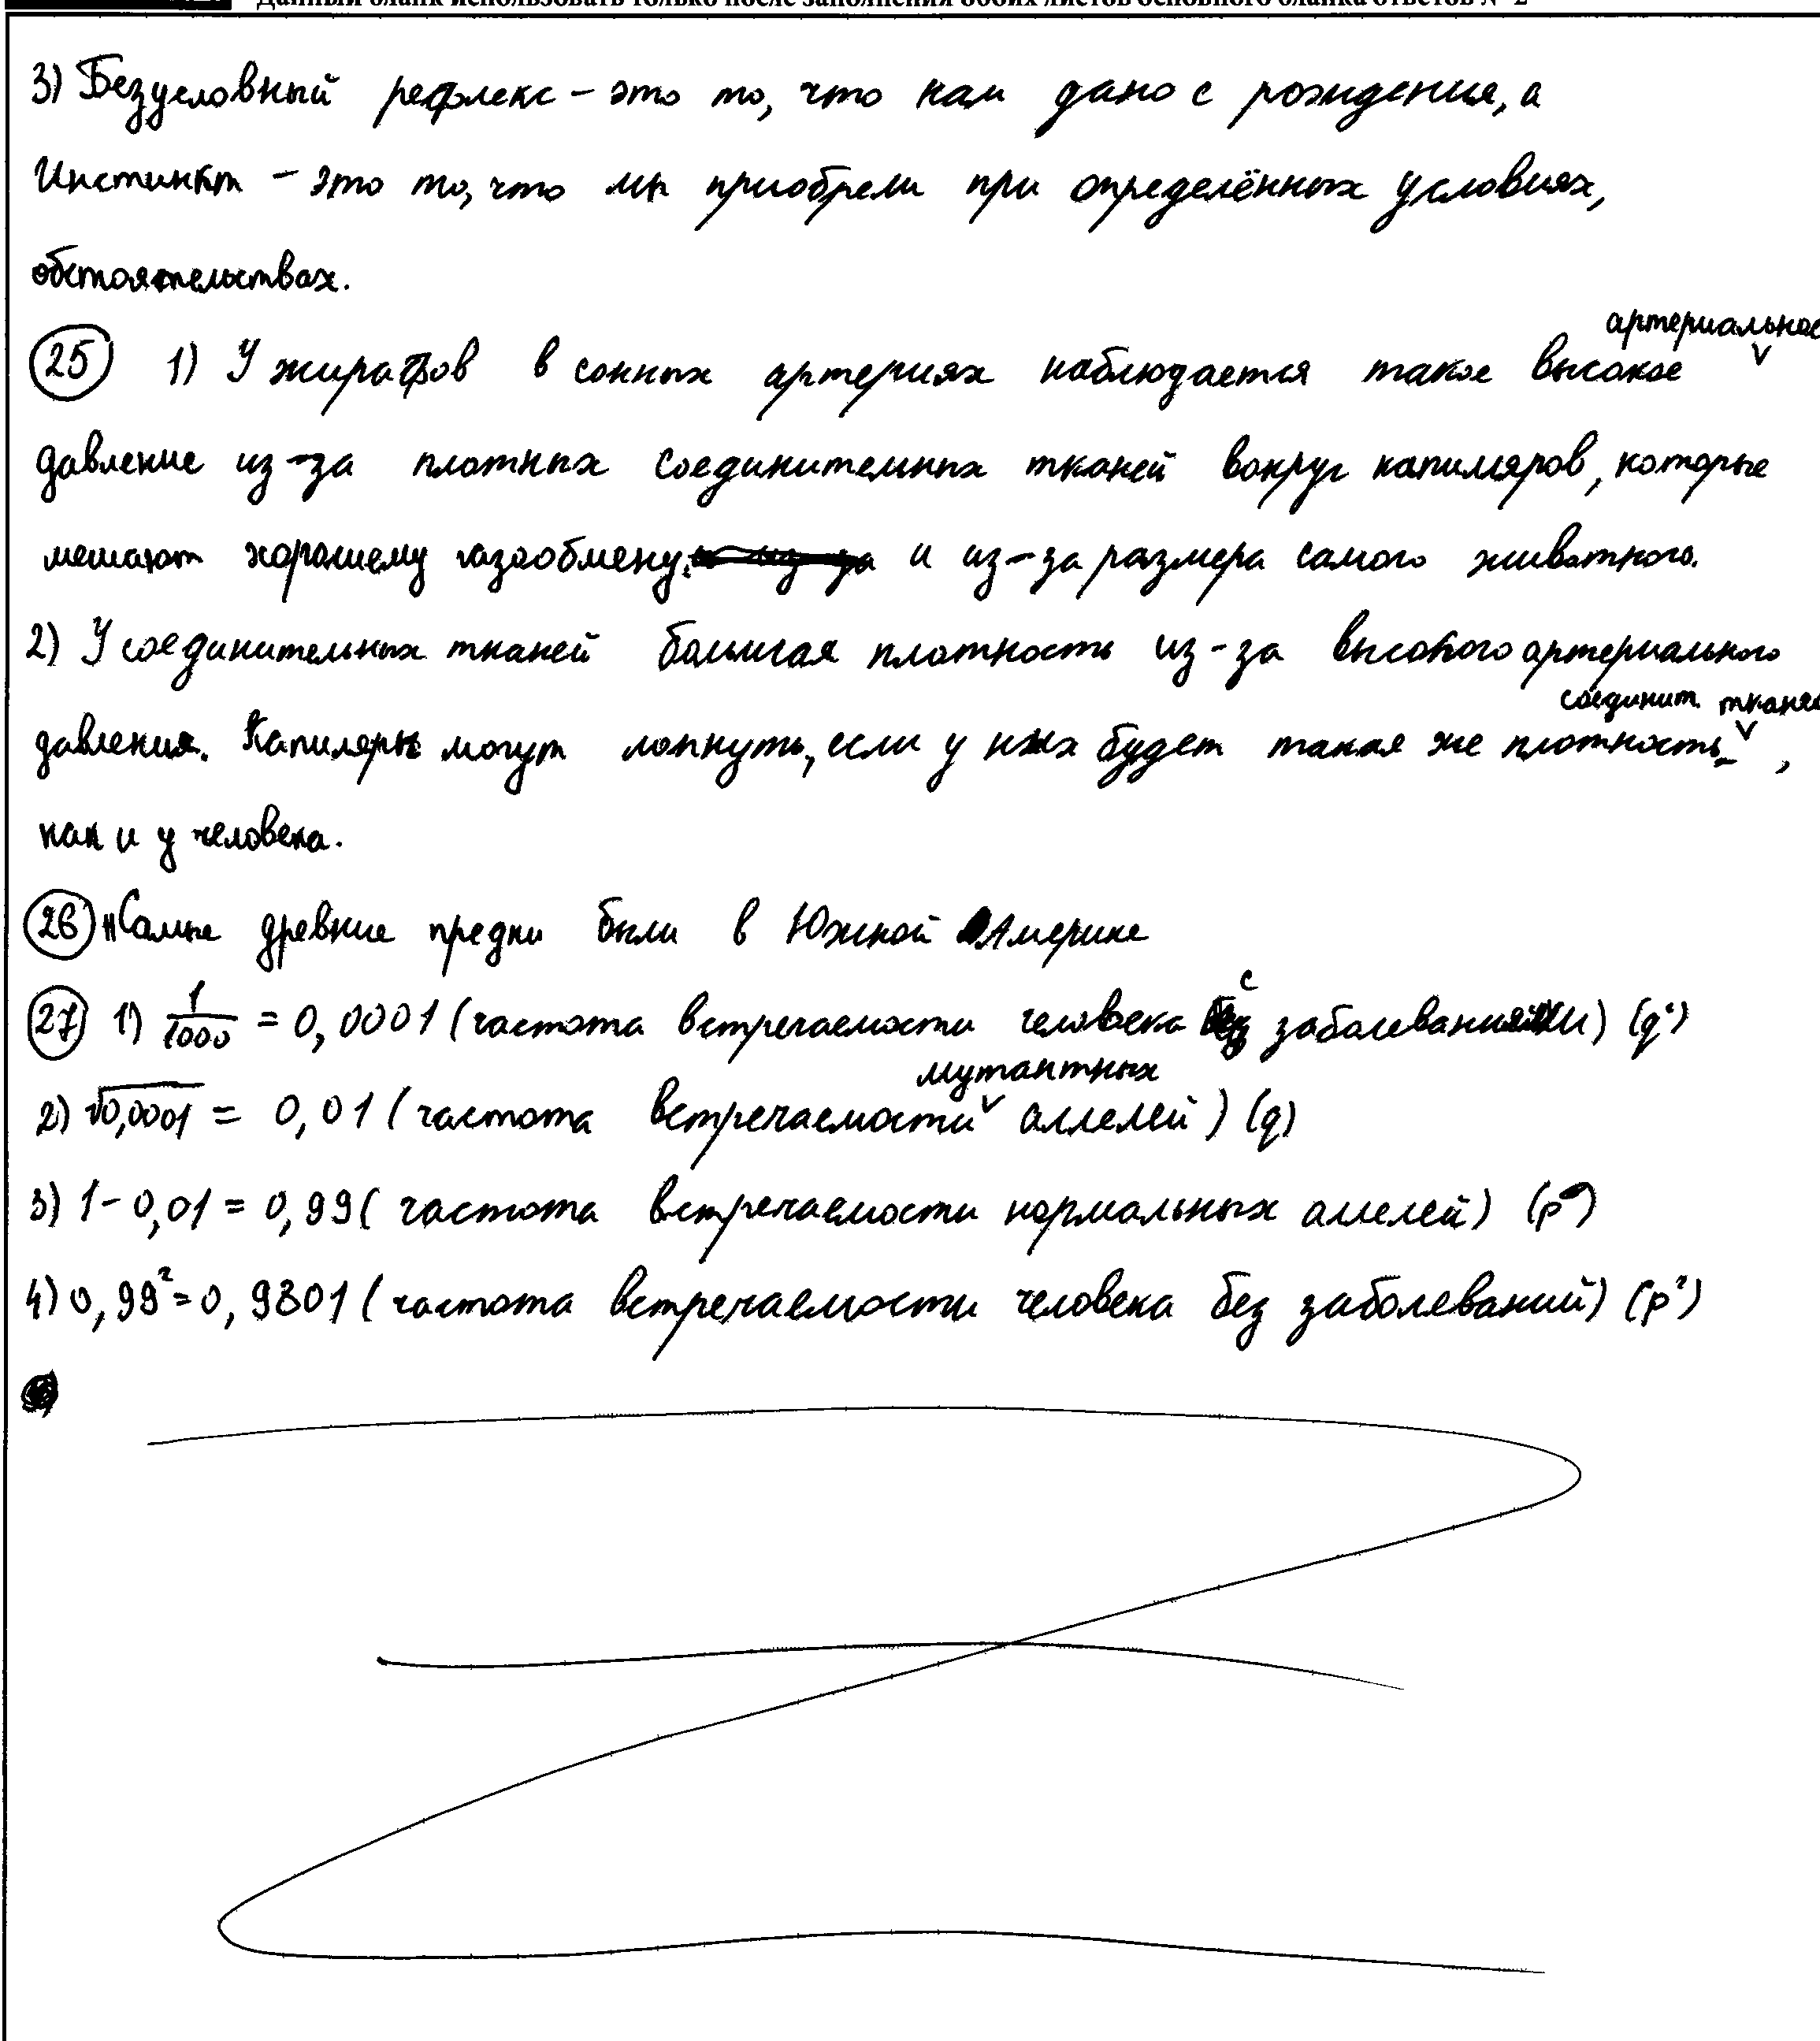 Данный бланк использовать только после заполнения обоих листов основного бланка ответов № 2
3) Безусловный рефлекс – это то, что нам дано с рождения, а
Инстинкт – это то, что мы приобрели при определённых условиях,
обстоятельствах.
артериальное
25 1) У жирафов в сонных артериях наблюдается такое высокое ˅
давление из-за плотных соединительных тканей вокруг капиляров, которые
мешают хорошему газообмену и из-за размера самого животного.
2) У соединительных тканей большая плотность из-за высокого артериального
соединит. тканей
давления. Капиляры могут лопнуть, если у них будет такая же плотность ˅,
как и у человека.
26 Самые древние предки были в Южной Америке
с
27 1) 1/1000 = 0,0001 (частота встречаемости человека заболеваниями) (q²)
мутантных
2) √0,0001 = 0,01 (частота встречаемости ˅ аллелей) (q)
3) 1-0,01 = 0,99 (частота встречаемости нормальных аллелей) (p)
4) 0,99² = 0,9801 (частота встречаемости человека без заболеваний) (p²)